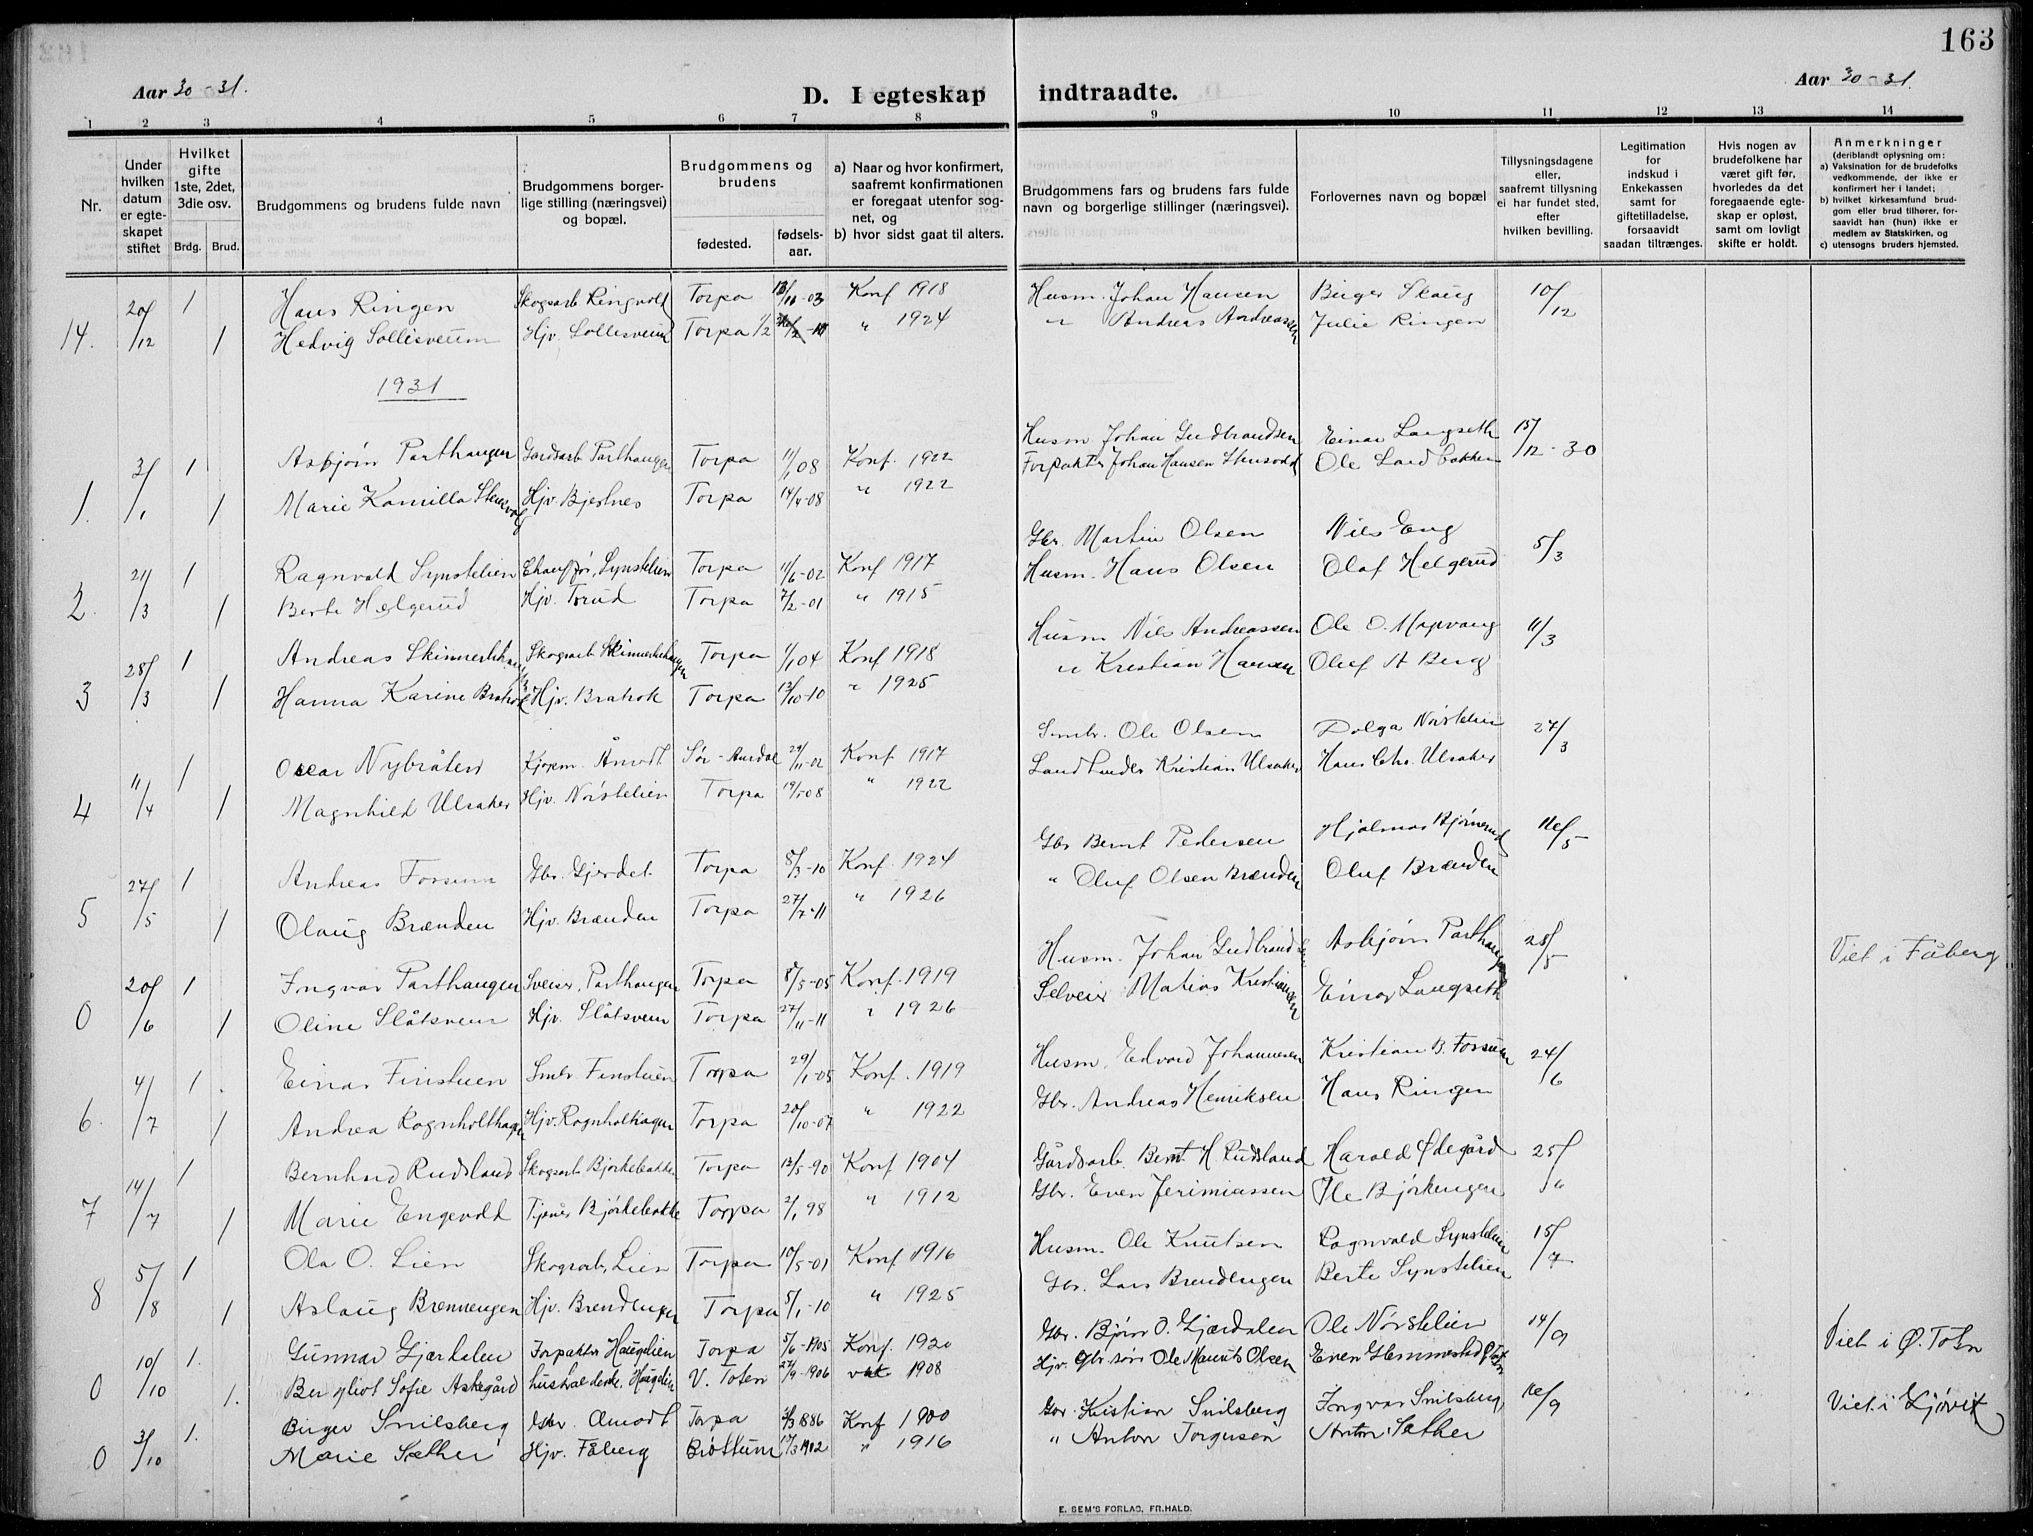 163
Aar 30 - 31.
D. I egteskap indtraadte.
Aar 30 - 31.
1 2 3 4 5 6 7 8 9 10 11 12 13 14
Nr.
Under hvilken datum er egteskapet stiftet
Hvilket gifte 1ste, 2det, 3die osv.
Brdg. Brud.
Brudgommens og brudens fulde navn
Brudgommens borgerlige stilling (næringsvei) og bopæl.
Brudgommens og brudens
fødested. fødselsaar.
a) Naar og hvor konfirmert, saafremt konfirmationen er foregaat utenfor sognet, og
b) hvor sidst gaat til alters.
Brudgommens fars og brudens fars fulde navn og borgerlige stillinger (næringsvei).
Forlovernes navn og bopæl
Tillysningsdagene eller, saafremt tillysning ei har fundet sted, efter hvilken bevilling.
Legitimation for indskud i Enkekassen samt for giftetilladelse, forsaavidt saadan tiltrænges.
Hvis nogen av brudefolkene har været gift før, hvorledes da det foregaaende egteskap er opløst, samt om lovligt skifte er holdt.
Anmerkninger (deriblandt oplysning om: a) Vaksination for de brudefolks vedkommende, der ikke er konfirmert her i landet; b) hvilket kirkesamfund brudgom eller brud tilhører, forsaavidt han (hun) ikke er medlem av Statskirken, og c) utensogns bruders hjemsted.
14. 20/12 1 Hans Ringen Skogsarb. Ringvold Torpa 03 Konf 1918 Husm. Johan Hansen Birger Skaug 10/12
1 Hedvig Sollisveum Hjv. Sollisveum Torpa " 1924 " Andreas Andreassen Julie Ringen
1931
1. 3/1 1 Asbjørn Parthaugen Gardsarb. Parthaugen Torpa 08 Konf. 1922 Husm. Johan Gudbrandsen Einar Langseth 15/12 - 30
1 Marie Kamilla Hjv. Bjestnes Torpa 14/4-08 " 1922 Forpakter Johan Hansen Ole Landbakken
2. 21/3 1 Ragnvald Synstelien Chauffør, Synstelien Torpa 11/6-02 Konf 1917 Gbr. Martin Olsen Nils Eng 5/3
1 Berte Helgerud Hjv. Torud Torpa 7/2-01 " 1915 Husm. Hans Olsen Olaf Helgerud
3 28/3 1 Andreas Skogsarb. Torpa 1/1 04 Konf 1918 Husm Nils Andreassen Ole O. 11/3
1 Hanna Karine Bratrok Hjv. Bratrok Torpa 12/10-10 " 1925 " Kristian Hansen Oluf A Berg
4 11/4 1 Oscar Nybråten Kjøpm. Åmodt Sør-Aurdal 29/11-02 Konf 1917 Smbr. Ole Olsen Dolga Nørstelien 27/3
1 Magnhild Ulsaker Hjv. Nørstelien Torpa 08 " 1922 Landhandler Kristian Ulsaker Hans Chr. Ulsaker
5 27/5 1 Andreas Forsum Gbr. Gjerdet Torpa 8/3-10 Konf. 1924 Gbr Bernt Pedersen Hjalmar Bjørnerud 16/5
1 Olaug Brænden Hjv. Brænden Torpa 27/7-11 " 1926 " Oluf Olsen Brænden Oluf Brænden
0 20/6 1 Ingvar Parthaugen Sveiser, Parthaugen Torpa 8/5-05 Konf. 1919 Husm. Johan Gudbrandsen Asbjørn Parthaugen 28/5 Viet i Fåberg
1 Oline Slåtsveen Hjv. Slåtsveen Torpa 27/11-11 " 1926 Selveier Matias Kristiansen Einar Langseth
6. 4/7 1. Einar Finstuen Smbr. Finstuen Torpa 29/1-05 Konf. 1919 Husm. Edvard Johannesen Kristian B. Forsum 24/6
1 Andrea Rognholthagen Hjv. Rognholthagen Torpa 20/10-07 " 1922 Gbr. Andreas Henriksen Hans Ringen
7 14/7 1 Bernhard Rudsland Skogsarb Bjørkebakke Torpa 12/5-90 Konf 1904 Gårdsarb. Bernt H. Rudsland Harald Ødegård 25/6
1 Marie Engevold Tjener Bjørkebakke Torpa 2/1 98 " 1912 Gbr. Even Jerimiassen Ole Bjørkengen
8 5/8 1 Ola O. Lien Skogsarb, Lien Torpa 10/5-01 Konf 1916 Husm. Ole Knutsen Ragnvald Synstelien 15/7
1 Aslaug Brennengen Hjv. Brendengen Torpa 5/1-10 " 1925 Gbr. Lars Brendengen Berte Synstelien
0 10/10 1. Gunnar Gjærdalen Forpakter Haugelien Torpa 5/6-1905 Konf. 1920 Gbr. Bjørn O. Gjærdalen Ole Nørstelien 14/9 Viet i Ø. Totn
1. Bergliot Sofie Askegård husholderske, Haugelien V. Toten 27/9-1906 1908 Ole Maurits Olsen Even
0 3/10 1. Birger Snilsberg Gbr. Amodt Torpa 1886 Konf 1900 Gbr. Kristian Snilsberg Ingvar Snilsberg 16/9 Viet i Gjøvik
Marie Sæther Hjv. Fåberg Brøttum 17/3 1902 " 1916 " Anton Jorgensen Anton Sæther
E. SEM'S FORLAG, FR.HALD.